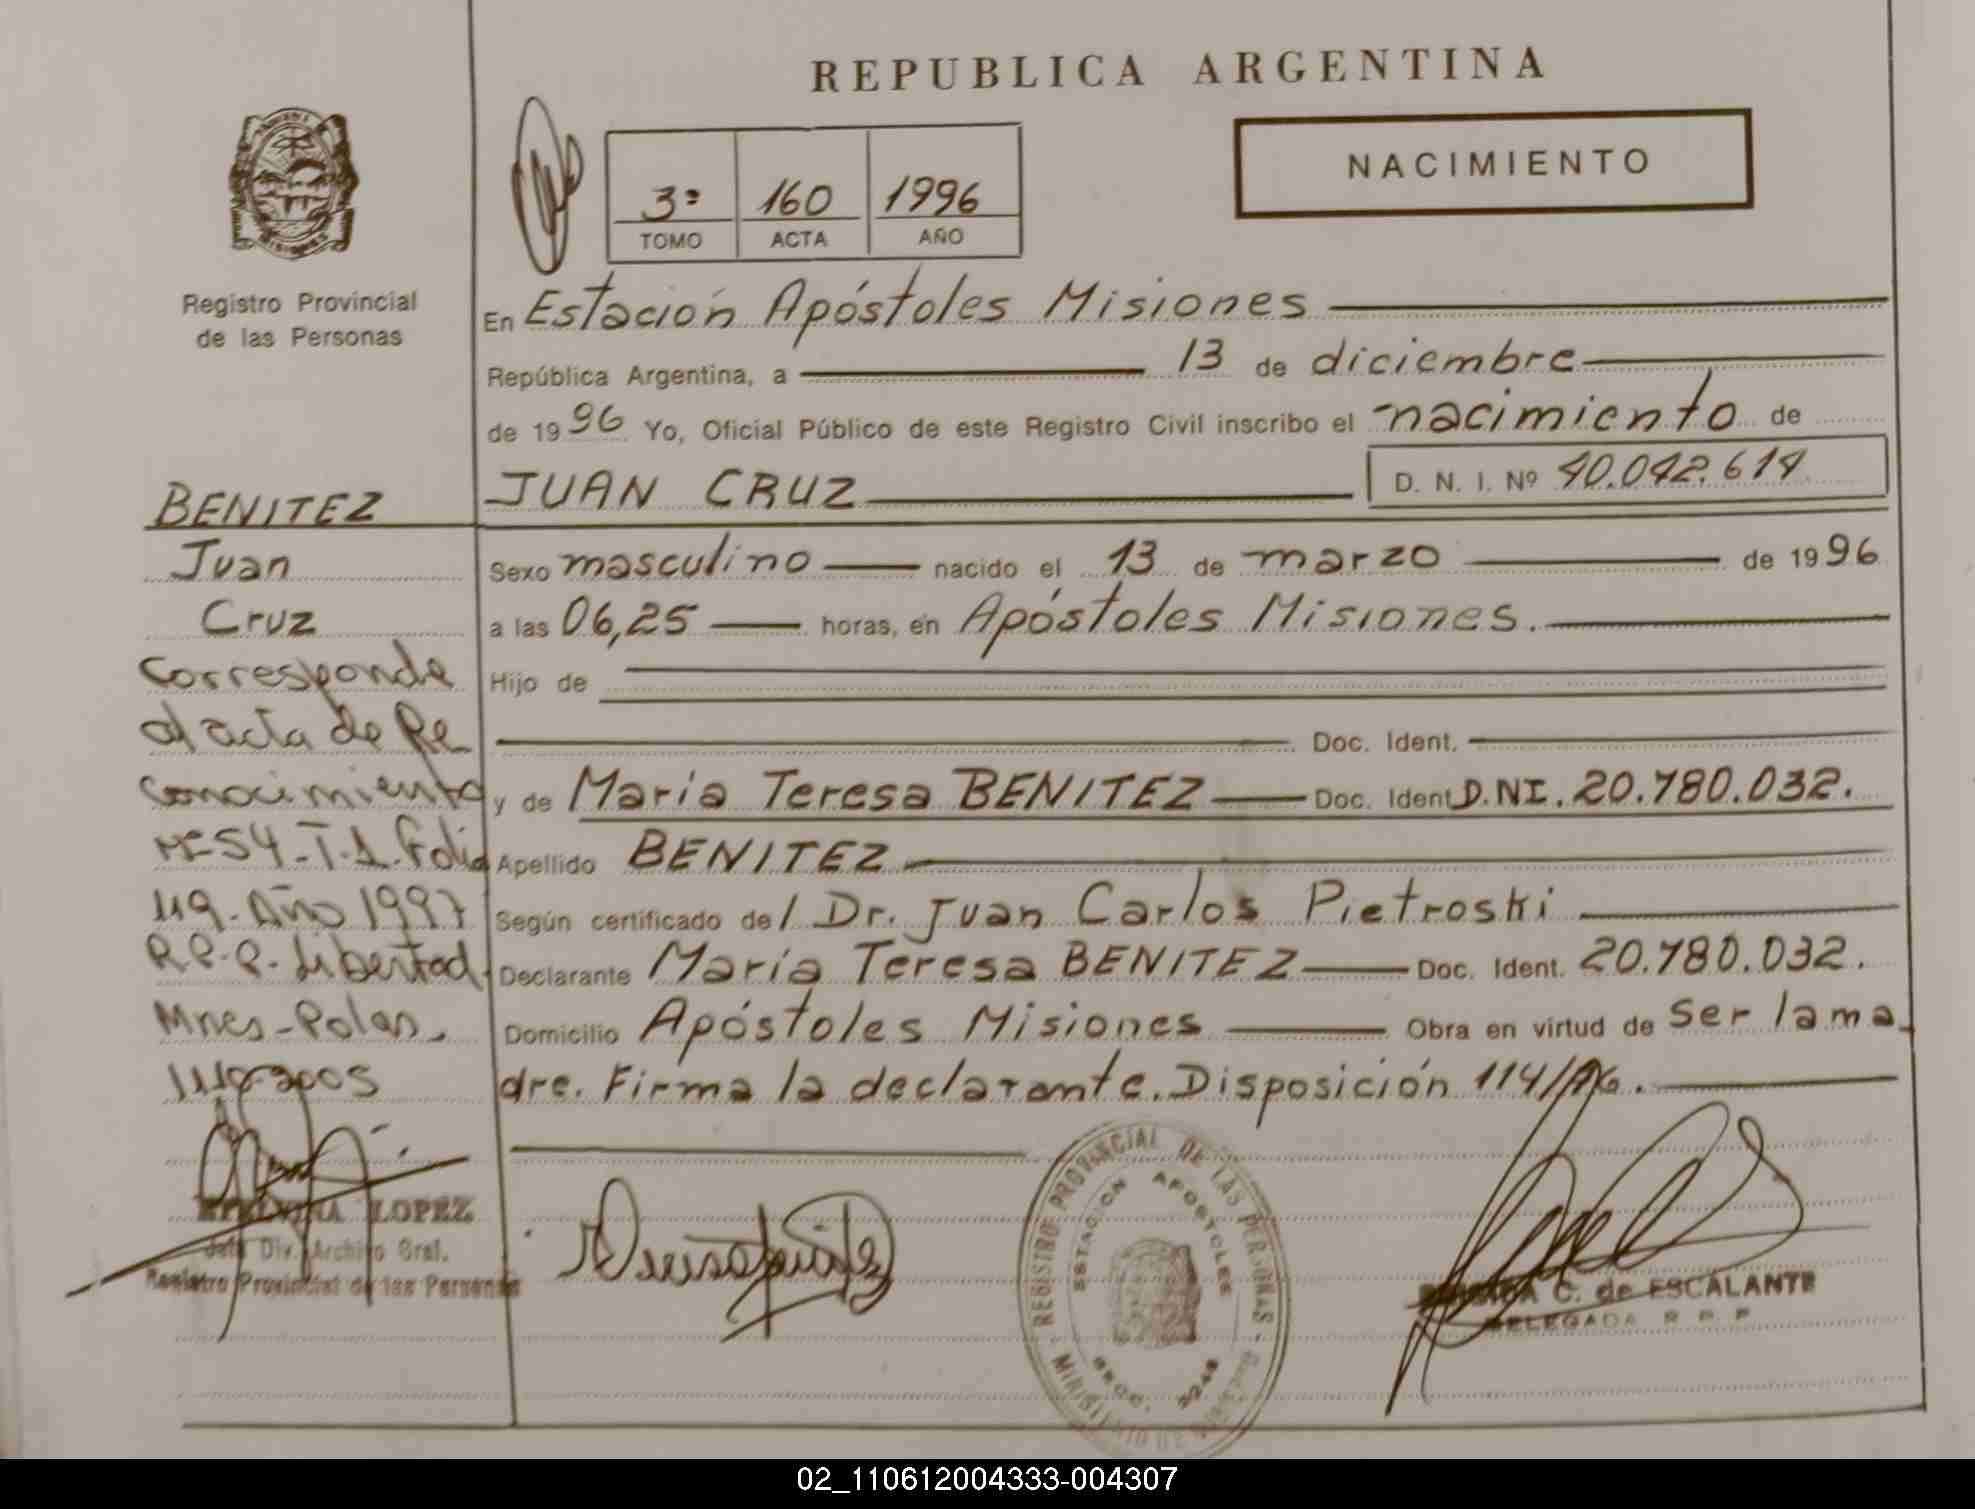 REPUBLICA ARGENTINA
NACIMIENTO
3º 160 1996
TOMO ACTA AÑO
Registro Provincial
de las Personas
En Estación Apóstoles Misiones
República Argentina, a 13 de diciembre
de 1996 Yo, Oficial Público de este Registro Civil inscribo el nacimiento de
JUAN CRUZ D. N. I. Nº 40.042.614
Sexo masculino nacido el 13 de marzo de 1996
a las 06,25 horas, en Apóstoles Misiones.
Hijo de
Doc. Ident.
y de María Teresa BENITEZ Doc. Ident D.NI. 20.780.032.
Apellido BENITEZ
Según certificado del Dr. Juan Carlos Pietroski
Declarante María Teresa BENITEZ Doc. Ident. 20.780.032.
Domicilio Apóstoles Misiones Obra en virtud de Ser la ma
dre. Firma la declarante. Disposición 114/96.
BENITEZ
Juan
Cruz
Corresponde
al acta de Re
conocimiento
Nº 54-T.1.folio
119-Año 1997
R.P.P. Libertad
Mnes-Polas.
LOPEZ
Jefa Div. Archivo Gral.
Registro Provincial de las Personas
REGISTRO PROVINCIAL DE LAS PERSONAS
ESTACION APOSTOLES
MINISTERIO DE GOBIERNO
C. de ESCALANTE
DELEGADA R. P. P.
02_110612004333-004307